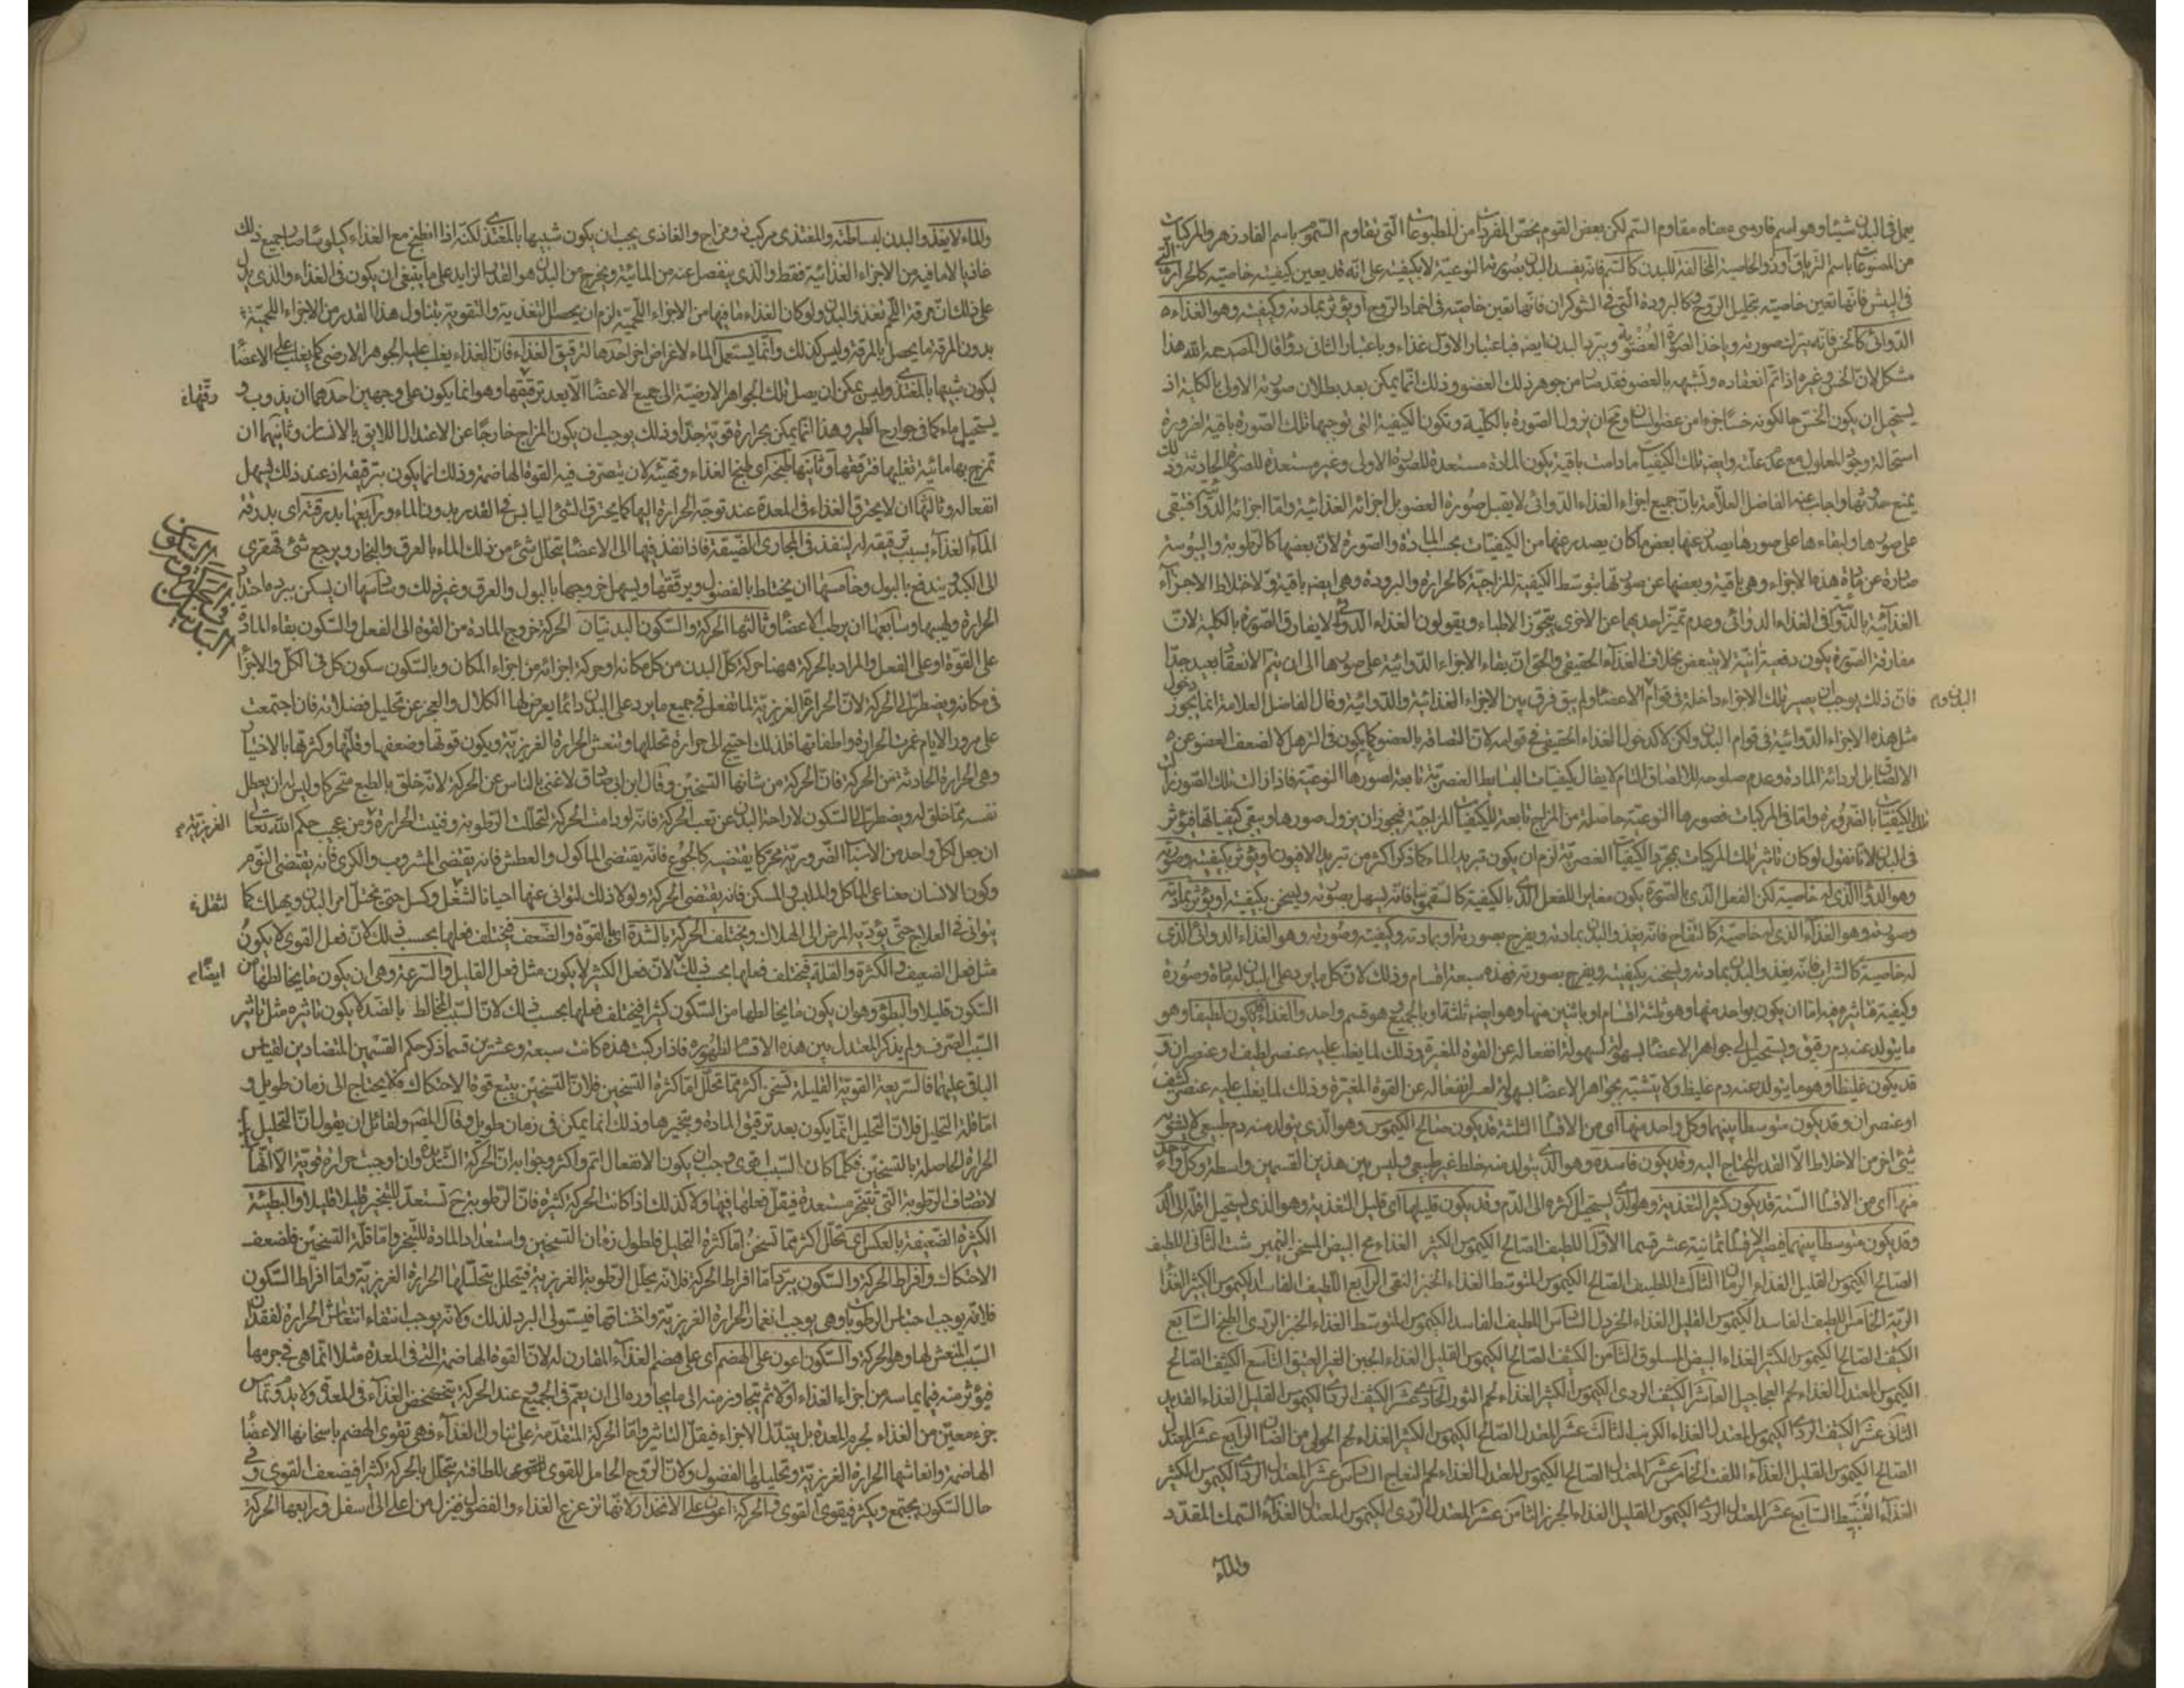 يعمل في البدن شيئا وهو اسم فارسى معناه مقاوم السم لكن بعض القوم يخص المفردات من المطبوعات التى تقاوم السموم باسم الفادزهر والمركبات
من المصنوعات باسم الترياق او ذو الخاصية المخالفة للبدن كالسم فانه يفسد البدن بصورته النوعية لا بكيفيته على انه قد يعين كيفيته خاصيته كالحرارة التى
في البيش فانها تعين خاصيته بتحليل الروح وكالبرودة التى في الشوكران فانها تعين خاصيته في اخماد الروح او يؤثر بمادته وكيفيته وهو الغذاء
الدوائى كالخس فانه يترك صورته وياخذ الصورة العضوية ويبرد البدن ايضا فباعتبار الاول غذاء وباعتبار الثانى دواء قال المص رحمه الله هذا
مشكل لان الخس وغيره اذا تم انعقاده وتشبهه بالعضو فقد صار من جوهر ذلك العضو وذلك انما يمكن بعد بطلان صورته الاولى بالكلية اذ
يستحيل ان يكون الخس حال كونه خسا جزءا من عضو انسان ومح ان يزول الصورة بالكلية وتكون الكيفية التى توجبها تلك الصورة باقية لضرورة
استحالة وجود المعلول مع عدم علته وايضا تلك الكيفيات مادامت باقية يكون المادة مستعدة للصورة الاولى وغير مستعدة للصورة الحادثة وذلك
يمنع حدوثها واجاب عنه الفاضل العلامة بان جميع اجزاء الغذاء الدوائى لا يقبل صورة العضو بل اجزائه الغذائية واما اجزائه الدوائية فتبقى
على صورها ولبقاءها على صورها يصدر عنها بعض ما كان يصدر عنها من الكيفيات بحسب المادة والصورة لان بعضها كالرطوبة واليبوسة
صادرة عن مادة هذه الاجزاء وهى باقية وبعضها عن صورتها بتوسط الكيفية المزاجية كالحرارة والبرودة وهى ايضا باقية ولاختلاط الاجزاء
الغذائية بالدوائية في الغذاء الدوائى وعدم تميز احديهما عن الاخرى يتجوز الاطباء ويقولون الغذاء الدوائى لا يفارق الصورة بالكلية لان
مفارقة الصورة يكون دفعية انية لا يتبعض بخلاف الغذاء الحقيقى والحق ان بقاء الاجزاء الدوائية على صورها الى ان يتم الانعقاد بعيد جدا
فان ذلك يوجب ان يصير تلك الاجزاء داخلة في قوام الاعضا ولم يبق فرق بين الاجزاء الغذائية والدوائية وقال الفاضل العلامة انما يجوز دخول
مثل هذه الاجزاء الدوائية في قوام البدن ولكن لا كدخول الغذاء الحقيقى في قوامه لان التصاقه بالعضو كما يكون في الترهل لا لضعف العضو عن
الالصاق بل لرداءة المادة وعدم صلوحه للالتصاق التام لا يقال كيفيات البسايط العنصرية تابعة لصورها النوعية فاذا زالت تلك الصور زالت
تلك الكيفيات بالضرورة واما في المركبات فصورها النوعية حاصلة من المزاج تابعة للكيفيات المزاجية فيجوز ان يزول صورها ويبقى كيفياتها فيؤثر
في البدن لانا نقول لو كان تاثير تلك المركبات بمجرد الكيفيات العنصرية لزم ان يكون تبريد الماء كما ذكر اكثر من تبريد الافيون او يؤثر بكيفيته وصورته
وهو الدواء الذى له خاصية لكن الفعل الذى بالصورة يكون مغايرا للفعل الذى بالكيفية كالسقمونيا فانه يسهل بصورته ويسخن بكيفيته او يؤثر بمادته
وصورته وهو الغذاء الذى له خاصية كالتفاح فانه يغذو البدن بمادته ويفرح بصورته او بمادته وكيفيته وصورته وهو الغذاء الدوائى الذى
له خاصية كالشراب فانه يغذو البدن بمادته ويسخنه بكيفيته ويفرح بصورته فهذه سبعة اقسام وذلك لان كل ما يرد على البدن له مادة وصورة
وكيفية فتاثيره فيه اما ان يكون بواحد منها وهو ثلثة اقسام او باثنين منها وهو ايضا ثلثة او بالجميع وهو قسم واحد والغذاء قد يكون لطيفا وهو
ما يتولد عنه دم رقيق ويستحيل الى جواهر الاعضا بسهولة لسهولة انفعاله عن القوة المغيرة وذلك لما يغلب عليه عنصر لطيف او عنصران و
قد يكون غليظا وهو ما يتولد عنه دم غليظ ولا يتشبه بجواهر الاعضا بسهولة لعسر انفعاله عن القوة المغيرة وذلك لما يغلب عليه عنصر كثيف
او عنصران وقد يكون متوسطا بينهما وكل واحد منها اى من الاقسام الثلثة قد يكون صالح الكيموس وهو الذى يتولد منه دم طبيعى لا يشوبه
شئ اخر من الاخلاط الا القدر المحتاج اليه وقد يكون فاسده وهو الذى يتولد منه خلط غير طبيعى وليس بين هذين القسمين واسطة وكل واحد
منها اى من الاقسام الستة قد يكون كثير التغذية وهو الذى يستحيل اكثره الى الدم وقد يكون قليلها اى قليل التغذية وهو الذى يستحيل اقله الى الدم
وقد يكون متوسطا بينهما فيصير الاقسام ثمانية عشر قسما الاول اللطيف الصالح الكيموس الكثير الغذاء مح البيض المسخن النيمبرشت الثانى اللطيف
الصالح الكيموس القليل الغذاء الرمان الثالث اللطيف الصالح الكيموس المتوسط الغذاء الخبز النقى الرابع اللطيف الفاسد الكيموس الكثير الغذاء
الرية الخامس اللطيف الفاسد الكيموس القليل الغذاء الخردل السادس اللطيف الفاسد الكيموس المتوسط الغذاء الخبز الردى الطبخ السابع
الكثيف الصالح الكيموس الكثير الغذاء البيض المسلوق الثامن الكثيف الصالح الكيموس القليل الغذاء الجبن الغير العتيق التاسع الكثيف الصالح
الكيموس المعتدل الغذاء لحم العجاجيل العاشر الكثيف الردى الكيموس الكثير الغذاء لحم الثور الحادى عشر الكثيف الردى الكيموس القليل الغذاء القديد
الثانى عشر الكثيف الردى الكيموس المعتدل الغذاء الكرنب الثالث عشر المعتدل الصالح الكيموس الكثير الغذاء لحم الحولى من الضان الرابع عشر المعتدل
الصالح الكيموس القليل الغذاء اللفت الخامس عشر المعتدل الصالح الكيموس المعتدل الغذاء لحم النعاج السادس عشر المعتدل الردى الكيموس الكثير
الغذاء القنبيط السابع عشر المعتدل الردى الكيموس القليل الغذاء الجزر الثامن عشر المعتدل الردى الكيموس المعتدل الغذاء السمك المقدد
والماء
والماء لا يغذو البدن لبساطته والمغتذى مركب ذو مزاج والغاذى يجب ان يكون شبيها بالمغتذى لكنه اذا انطبخ مع الغذاء كيلوسا صار جميع ذلك
غاذيا لا ما فيه من الاجزاء الغذائية فقط والذى ينفصل عنه من المائية ويخرج من البدن هو القدر الزايد على ما ينبغى ان يكون في الغذاء والذى يدل
على ذلك ان مرقة اللحم تغذو البدن ولو كان الغذاء ما فيها من الاجزاء اللحمية لزم ان يحصل التغذية والتقوية بتناول هذا القدر من الاجزاء اللحمية
بدون المرقة ما يحصل بالمرقة وليس كذلك وانما يستعمل الماء لاغراض اخر احدها لترقيق الغذاء فان الغذاء يغلب عليه الجوهر الارضى كما يغلب على الاعضا
ليكون شبيها بالمغتذى وليس يمكن ان يصل تلك الجواهر الارضية الى جميع الاعضا الا بعد ترقيقها وهو انما يكون على وجهين احدهما ان يذوب و
يستحيل ماء كما في جوارح الطير وهذا انما يمكن بحرارة قوية جدا وذلك يوجب ان يكون المزاج خارجا عن الاعتدال اللايق بالانسان وثانيهما ان
تمزج بها مائية تغليها فترققها وثانيها طبخه اى طبخ الغذاء وتهيئه لان يتصرف فيه القوة الهاضمة وذلك انما يكون بترقيقه اذ عند ذلك يسهل
انفعاله وثالثها ان لا يحترق الغذاء في المعدة عند توجه الحرارة اليها كما يحترق الشئ اليابس في القدر بدون الماء ورابعها بدرقته اى بدرقة
الماء الغذاء بسبب ترقيقه له لينفذ في المجارى الضيقة فاذا نفذ فيها الى الاعضا يتحلل شئ من ذلك الماء بالعرق والبخار ويرجع شئ قهقرى
الى الكبد ويندفع بالبول وخامسها ان يختلط بالفضول ويرققها ويسهل خروجها بالبول والعرق وغير ذلك وسادسها ان يسكن ببرده حدة
الحرارة ولهيبها وسابعها ان يرطب الاعضا وثالثها الحركة والسكون البدنيان الحركة خروج المادة من القوة الى الفعل والسكون بقاء المادة
على القوة او على الفعل والمراد بالحركة ههنا حركة كل البدن من كل مكانه او حركة اجزائه من اجزاء المكان وبالسكون سكون كل في الكل والاجزا
في مكانه ويضطر الى الحركة لان الحرارة الغريزية لما تفعل في جميع ما يرد على البدن دائما يعرض لها الكلال والعجز عن تحليل فضلاته فان اجتمعت
على مرور الايام غمرت الحرارة واطفاتها فلذلك احتيج الى حرارة تحللها وتنعش الحرارة الغريزية ويكون قوتها وضعفها وقلتها وكثرتها بالاختيار
وهى الحرارة الحادثة من الحركة فان الحركة من شانها التسخين وقال ابن ابى صادق لا غنى بالناس عن الحركة لانه خلق بالطبع متحركا وليس له ان يعطل
نفسه عما خلق له ويضطر الى السكون لاراحة البدن عن تعب الحركة فانه لو دامت الحركة لتحللت الرطوبة وفنيت الحرارة ومن عجيب حكم الله تعالى
ان جعل لكل واحد من الاسباب الضرورية محركا يقتضيه كالجوع فانه يقتضى الماكول والعطش فانه يقتضى المشروب والكرى فانه يقتضى النوم
وكون الانسان معنا على الماكل والملبس والمسكن فانه يقتضى الحركة ولولا ذلك لتوانى عنها احيانا لشغل وكسل حتى يختل امر البدن ويهلك كما
يتوانى في العلاج حتى يؤديه المرض الى الهلاك ويختلف الحركة بالشدة اى القوة والضعف فيختلف فعلها بحسب ذلك لان فعل القوى لا يكون
مثل فعل الضعيف والكثرة والقلة فيختلف فعلها بحسب ذلك لان فعل الكثير لا يكون مثل فعل القليل والسرعة وهى ان يكون ما يخالطها من
السكون قليلا والبطؤ وهو ان يكون ما يخالطها من السكون كثيرا فيختلف فعلها بحسب ذلك لان السبب المخالط بالضد لا يكون تاثيره مثل تاثير
السبب الصرف ولم يذكر المعتدل بين هذه الاقسام لظهوره فاذا ركبت هذه كانت سبعة وعشرين قسما ذكر حكم القسمين المتضادين لقياس
الباقى عليهما فالسريعة القوية القليلة تسخن اكثر مما تحلل اما كثرة التسخين فلان التسخين يتبع قوة الاحتكاك فلا يحتاج الى زمان طويل و
اما قلة التحليل فلان التحليل انما يكون بعد ترقيق المادة وتبخيرها وذلك انما يمكن في زمان طويل وقال المص ولقائل ان يقول ان التحليل
الحرارة الحاصلة بالتسخين فكلما كان السبب اقوى وجب ان يكون الانفعال اتم واكثر وجوابه ان الحركة الشديدة وان اوجبت حرارة قوية الا انها
لا تصادف الرطوبة التى تتبخر مستعدة فيقل فعلها فيها ولا كذلك اذا كانت الحركة كثيرة فان الرطوبة ح تستعد للتبخير قليلا قليلا والبطيئة
الكثيرة الضعيفة بالعكس اى تحلل اكثر مما تسخن اما كثرة التحليل فلطول زمان التسخين واستعداد المادة للتبخر واما قلة التسخين فلضعف
الاحتكاك وافراط الحركة والسكون يبرد اما افراط الحركة فلانه يحلل الرطوبة الغريزية فيتحلل بتحللها الحرارة الغريزية واما افراط السكون
فلانه يوجب احتباس الرطوبات وهى يوجب انغمار الحرارة الغريزية واختناقها فيستولى البرد لذلك ولانه يوجب انتفاء انتعاش الحرارة لفقدان
السبب المنعش لها وهو الحركة والسكون اعون على الهضم اى على هضم الغذاء المقارن له لان القوة الهاضمة التى في المعدة مثلا انما هى في جرمها
فيؤثر منه فيما يماسه من اجزاء الغذاء اولا ثم يتجاوز منه الى ما يجاوره الى ان يعم في الجميع وعند الحركة يتخضخض الغذاء في المعدة ولا يدوم تماس
جزء معين من الغذاء لجرم المعدة بل يتبدل الاجزاء فيقل التاثير واما الحركة المتقدمة على تناول الغذاء فهى تقوى الهضم باسخانها الاعضا
الهاضمة وانعاشها الحرارة الغريزية وتحليلها الفضول ولان الروح الحامل للقوى للطافته يتحلل بالحركة كثيرا فيضعف القوى وفى
حال السكون يجتمع ويكثر فيقوى القوى والحركة اعون على الانحدار لانها تزعزع الغذاء والفضول فينزل من اعلى الى اسفل ورابعها الحركة
رقتها
الحركة والسكون
البدنيان
الغريزية
لثقله
ايضا